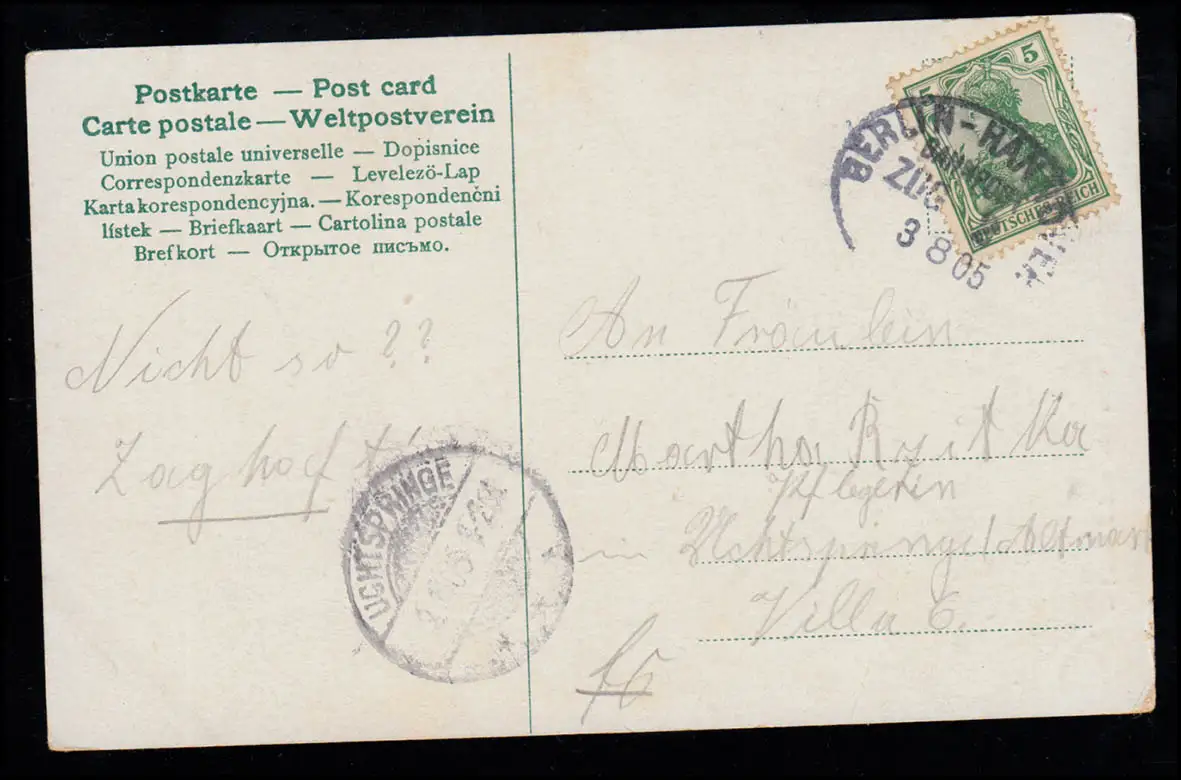 Postkarte — Post card
Carte postale — Weltpostverein
Union postale universelle — Dopisnice
Correspondenzkarte — Levelező-Lap
Karta korespondencyjna. — Korespondenčni
lístek — Briefkaart — Cartolina postale
Brefkort — Открытое письмо.
5
5
DEUTSCHES REICH
BERLIN-HANNOVER
BAHNPOST
ZUG
3 8 05
Nicht so ??
Zaghaft!
UCHTSPRINGE
An Fräulein
Martha Rzitka
Pflegerin
in Uchtspringe/Altmark
Villa 6.